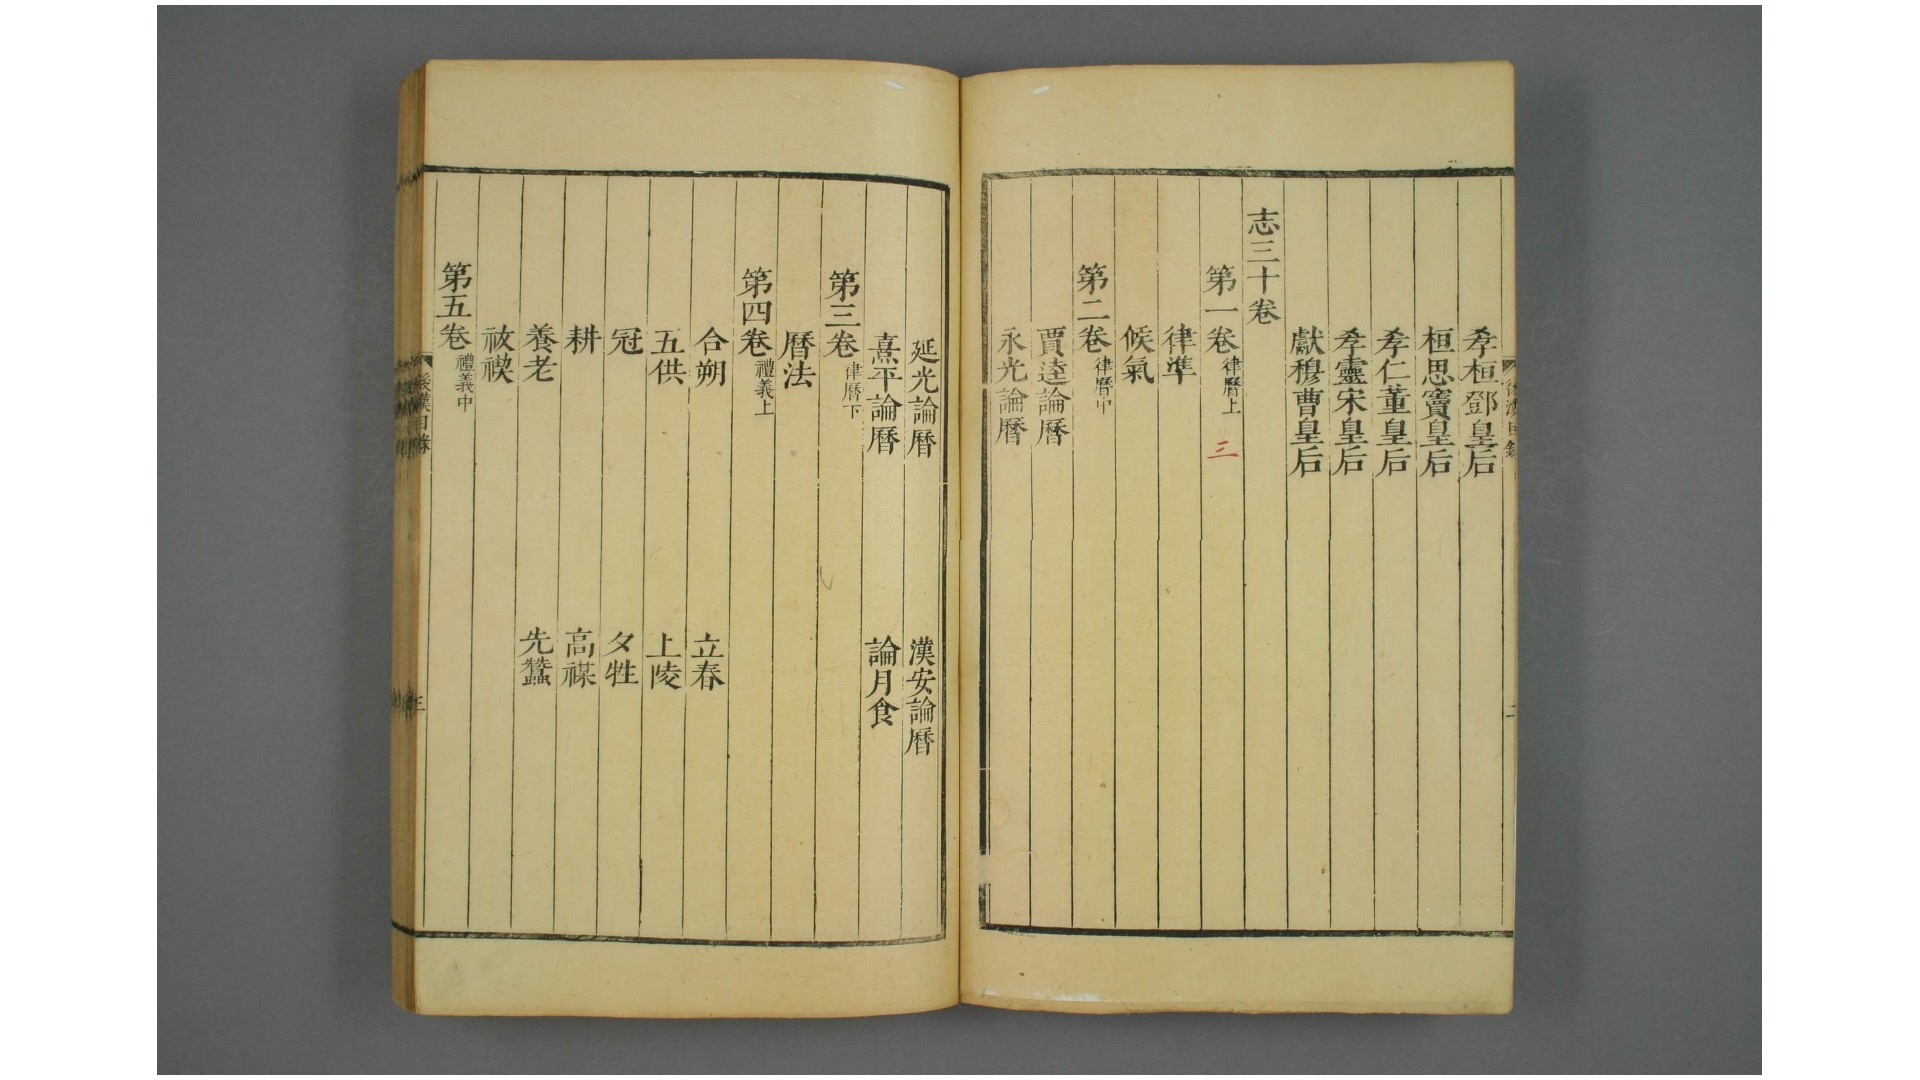 孝桓鄧皇后
桓思竇皇后
孝仁董皇后
孝靈宋皇后
獻穆曹皇后
志三十卷
第一卷律曆上 三
律準
候氣
第二卷律曆中
賈逵論曆
永光論曆
延光論曆 漢安論曆
熹平論曆 論月食
第三卷律曆下
曆法
第四卷禮義上
合朔 立春
五供 上陵
冠 夕牲
耕 高禖
養老 先蠶
祓禊
第五卷禮義中
後漢目錄 三